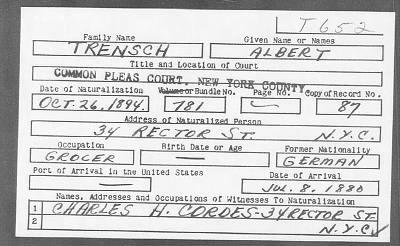 T652
Family Name Given Name or Names
TRENSCH ALBERT
Title and Location of Court
COMMON PLEAS COURT, NEW YORK COUNTY
Date of Naturalization Volume or Bundle No. Page No. Copy of Record No.
OCT. 26, 1894. 781 — 87
Address of Naturalized Person
34 RECTOR ST. N.Y.C.
Occupation Birth Date or Age Former Nationality
GROCER — GERMAN
Port of Arrival in the United States Date of Arrival
— JUL. 8. 1880
Names, Addresses and Occupations of Witnesses To Naturalization
1 CHARLES H. CORDES-34 RECTOR ST.
2 N.Y.C.